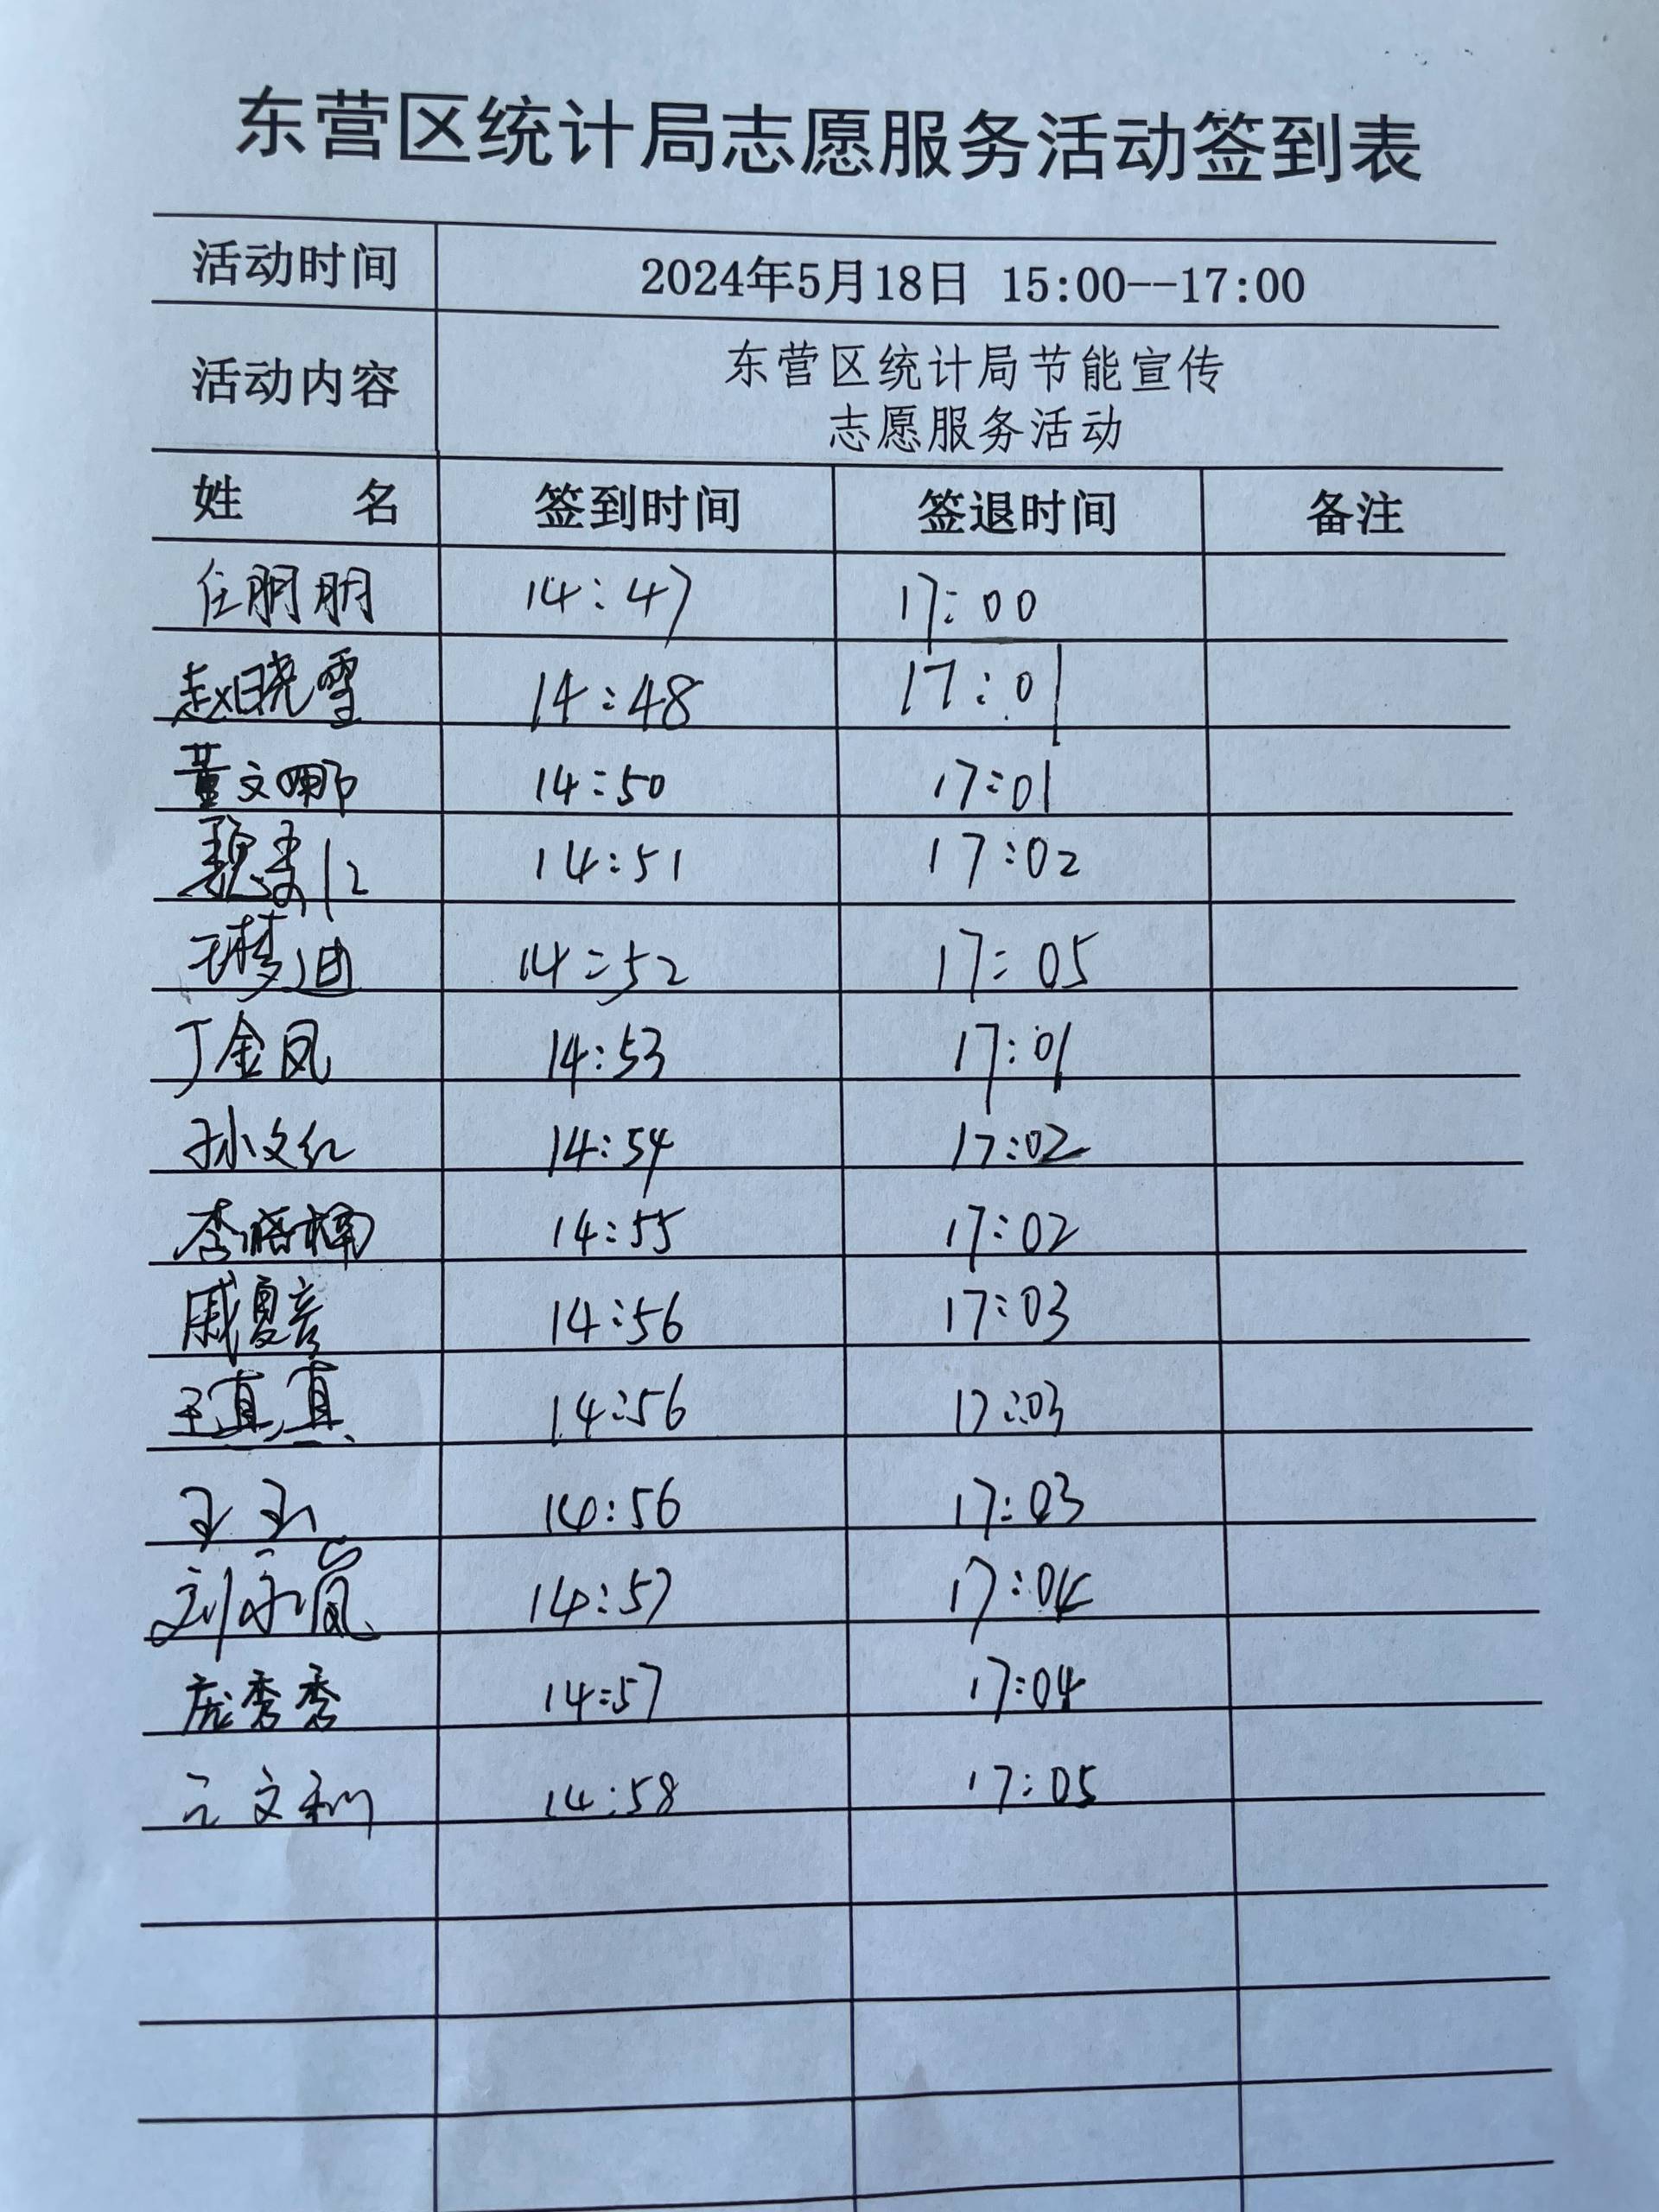 东营区统计局志愿服务活动签到表
活动时间 2024年5月18日 15:00--17:00
活动内容 东营区统计局节能宣传
志愿服务活动
姓 名 签到时间 签退时间 备注
任朋朋 14:47 17:00
赵晓雪 14:48 17:01
董文娜 14:50 17:01
14:51 17:02
王梦迪 14:52 17:05
丁金凤 14:53 17:01
孙文红 14:54 17:02
李晓楠 14:55 17:02
戚夏彦 14:56 17:03
王真真 14:56 17:03
14:56 17:03
14:57 17:04
庞秀秀 14:57 17:04
14:58 17:05